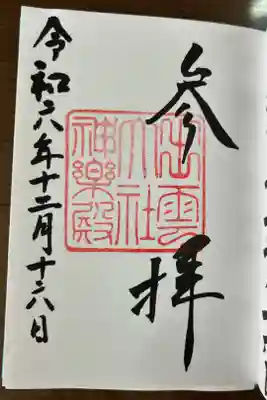 参拝
出雲
大社
神樂殿
令和六年十二月十六日